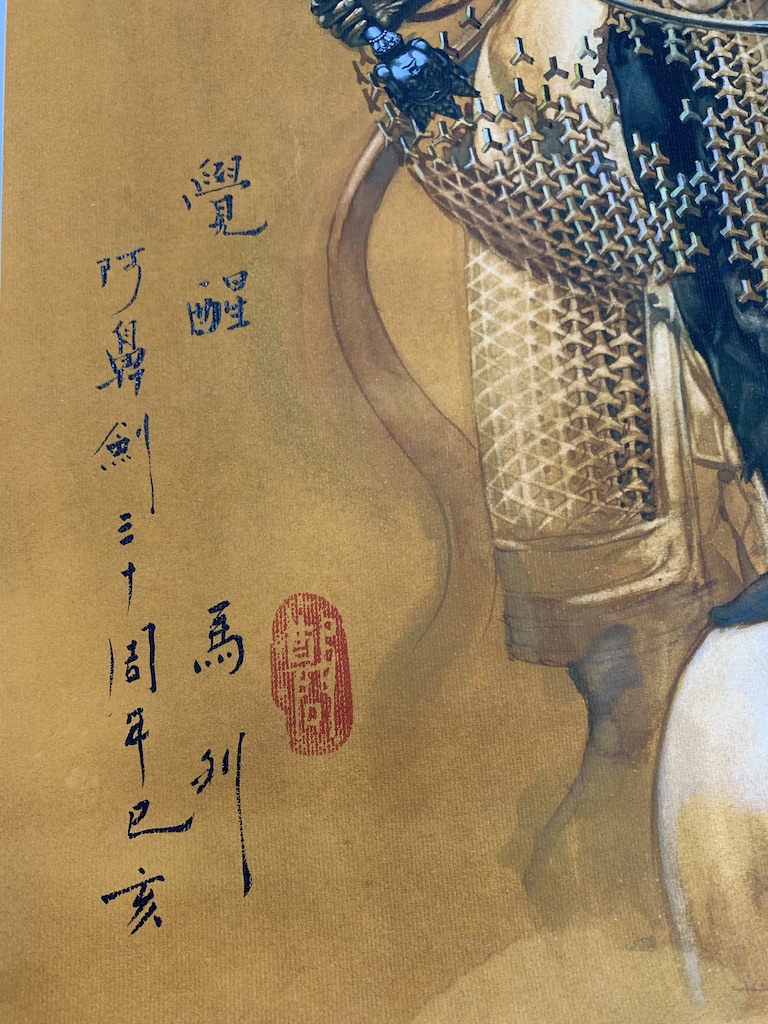 覺醒
馬利
阿鼻劍三十周年己亥